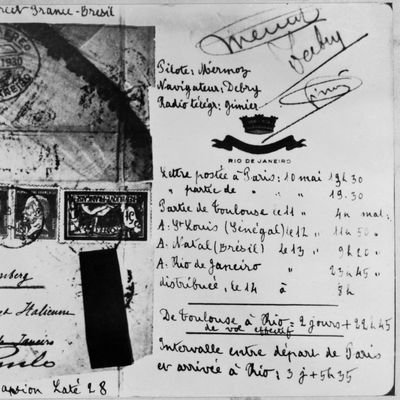 France-Brésil
1930
Mermoz
Debry
Gimié
Pilote: Mermoz
Navigateur: Debry
Radio télégr: gimier
RIO DE JANEIRO
Lettre postée à Paris: 10 mai 17h30
" partie de " " " 19.30
Partie de Toulouse le 11 " 4h mat:
A. St Louis (Sénégal) le 12 " 11h50 "
A. Natal (Brésil) le 13 " 9h20 "
A. Rio de Janeiro " 23h45 "
distribuée, le 14 à 8h
De Toulouse à Rio = 2 jours + 22h45
de vol effectif
Intervalle entre départ de Paris
et arrivée à Rio: 3 j + 5h35
Italienne
de Janeiro
Paulo
Laté 28